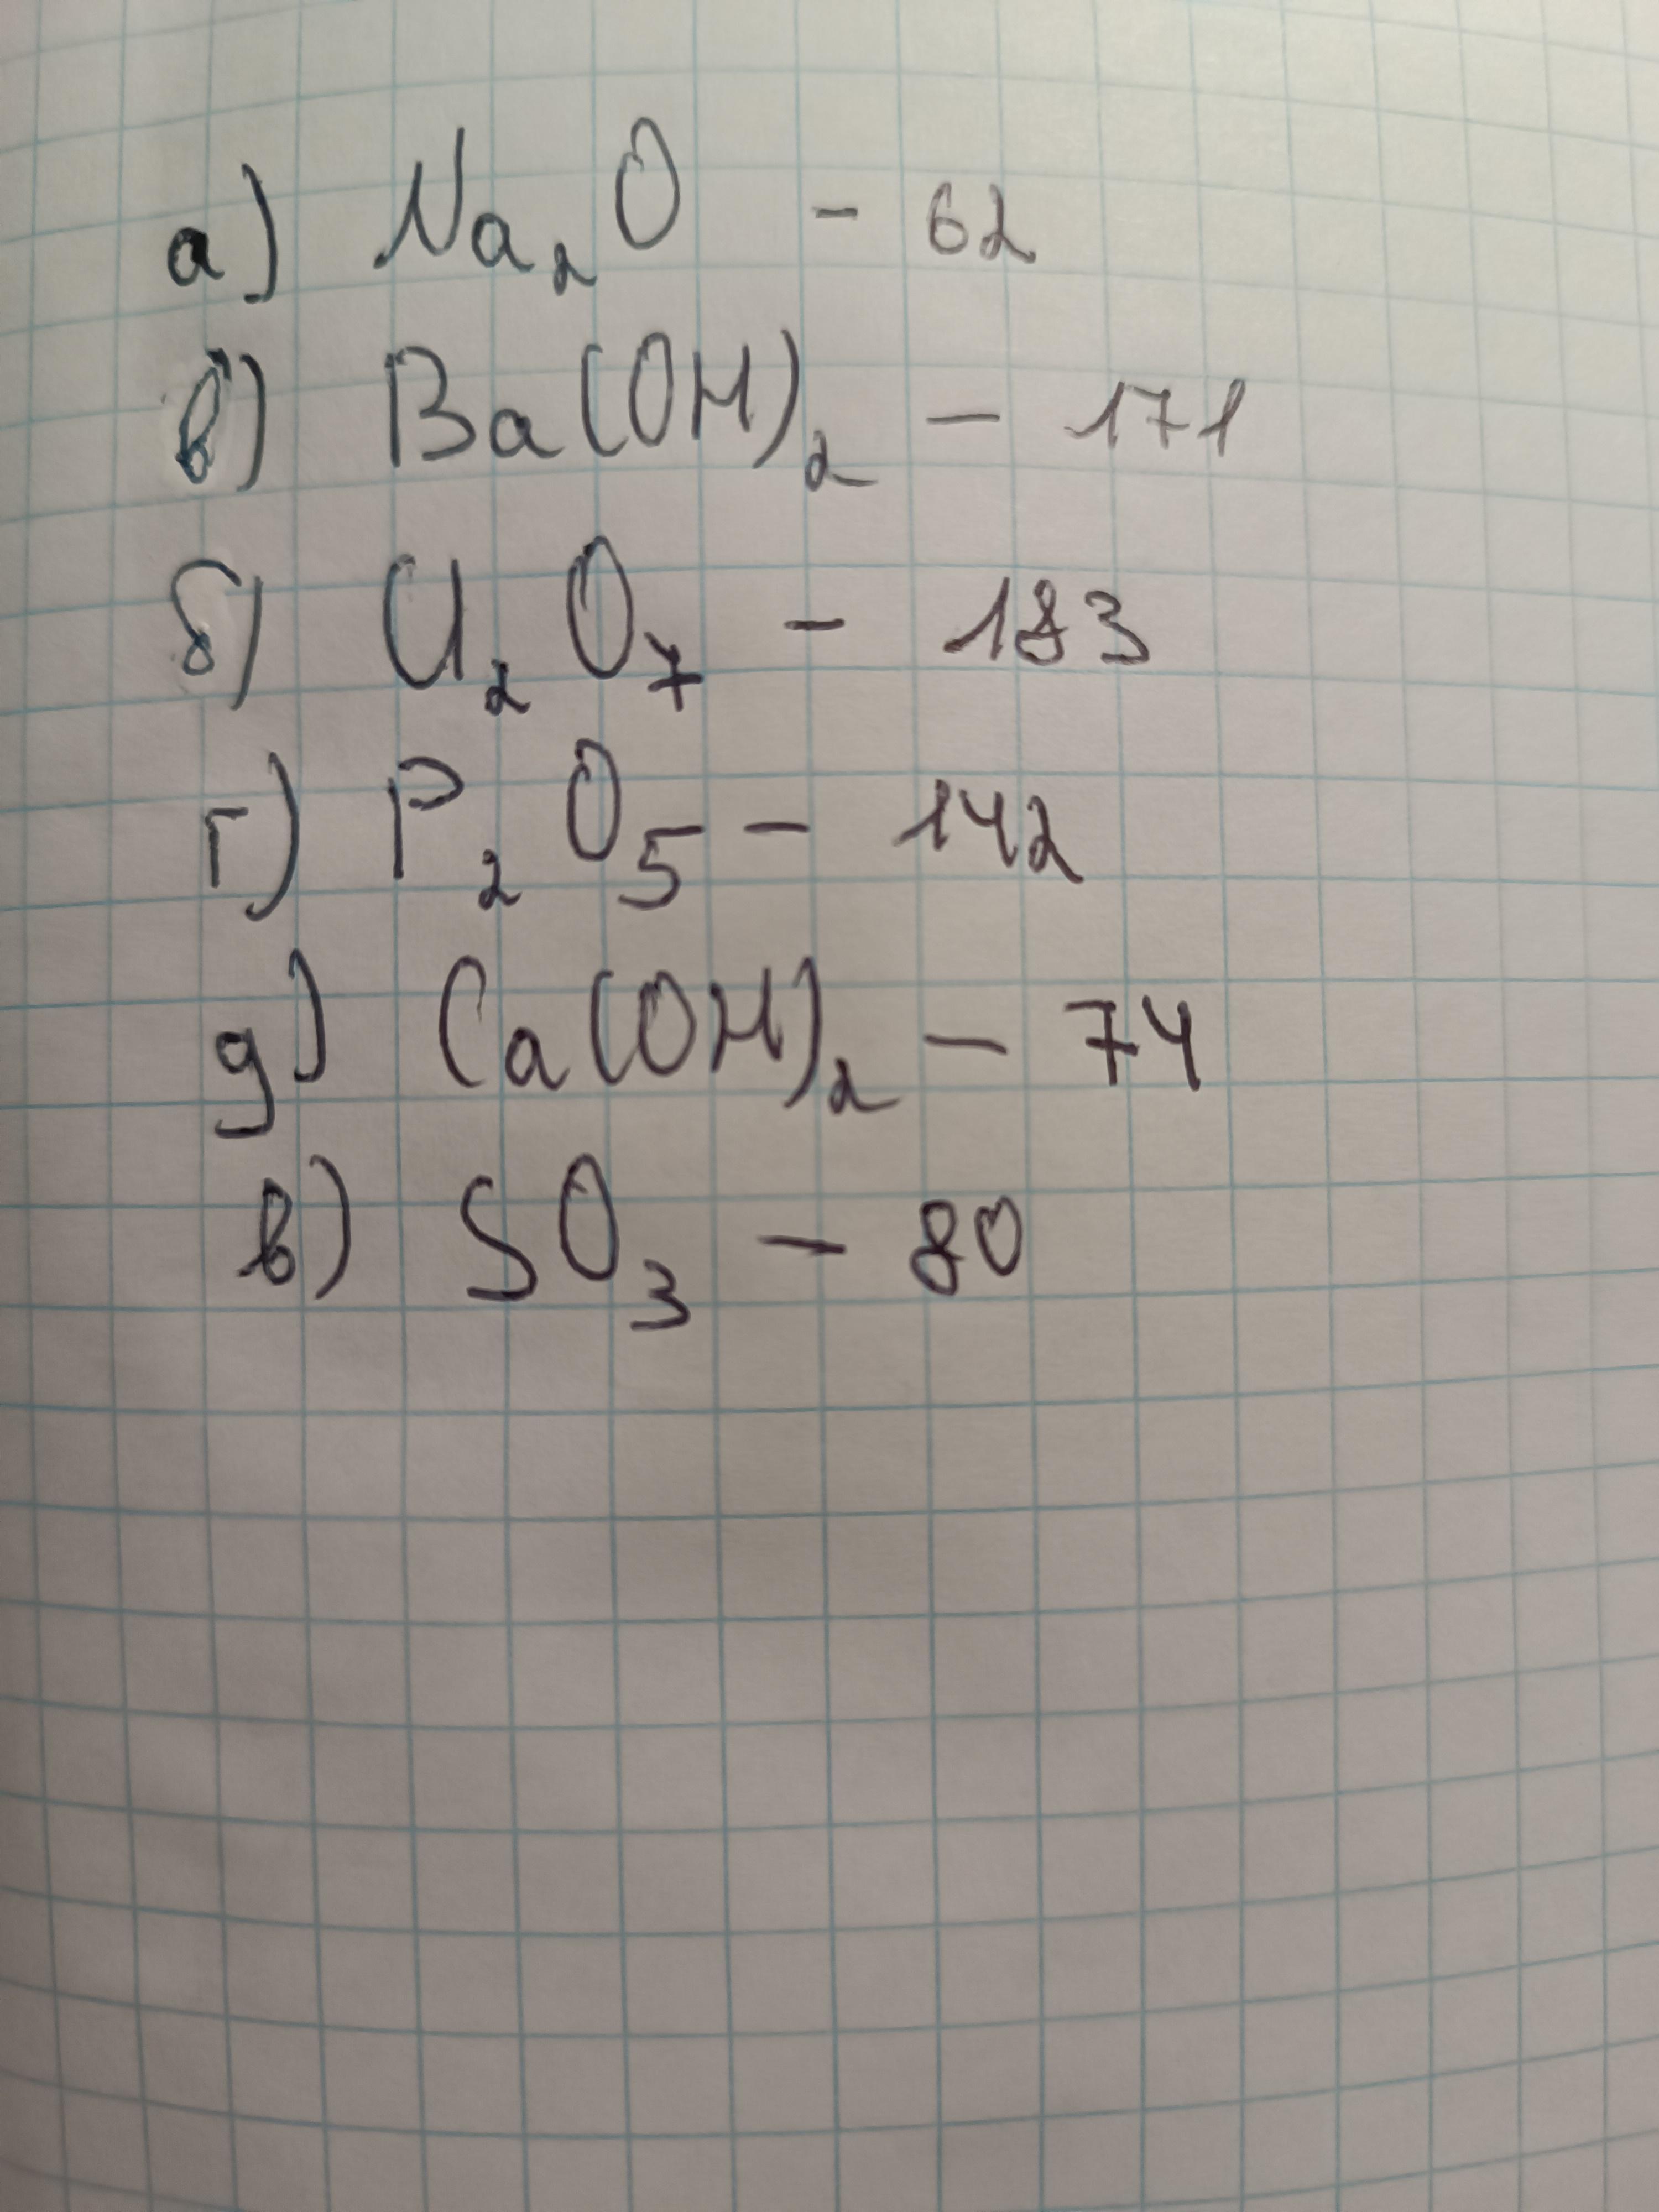 а) Na₂O - 62
в) Ba(OH)₂ - 171
б) Cl₂O₇ - 183
г) P₂O₅ - 142
д) Ca(OH)₂ - 74
в) SO₃ - 80